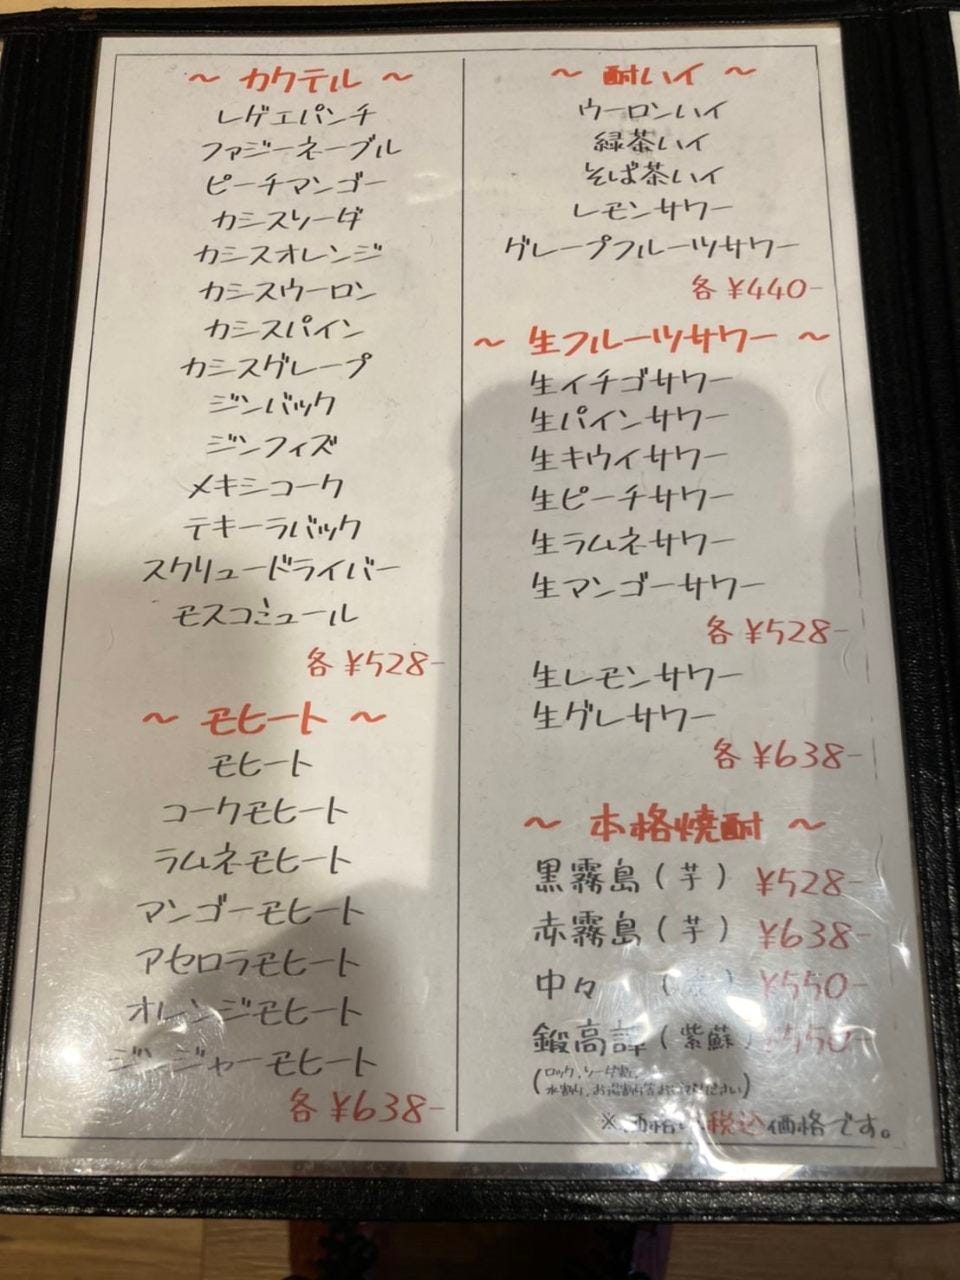 ～ カクテル ～
レゲエパンチ
ファジーネーブル
ピーチマンゴー
カシスソーダ
カシスオレンジ
カシスウーロン
カシスパイン
カシスグレープ
ジンバック
ジンフィズ
メキシコーク
テキーラバック
スクリュードライバー
モスコミュール
各 ¥528-
～ モヒート ～
モヒート
コークモヒート
ラムネモヒート
マンゴーモヒート
アセロラモヒート
オレンジモヒート
ジンジャーモヒート
各 ¥638-
～ 酎ハイ ～
ウーロンハイ
緑茶ハイ
そば茶ハイ
レモンサワー
グレープフルーツサワー
各 ¥440-
～ 生フルーツサワー ～
生イチゴサワー
生パインサワー
生キウイサワー
生ピーチサワー
生ラムネサワー
生マンゴーサワー
各 ¥528-
生レモンサワー
生グレサワー
各 ¥638-
～ 本格焼酎 ～
黒霧島（芋） ¥528-
赤霧島（芋） ¥638-
中々 ¥550-
鍛高譚（紫蘇）
（ロック、ソーダ割、
水割り、お湯割り等お
※ 税込価格です。